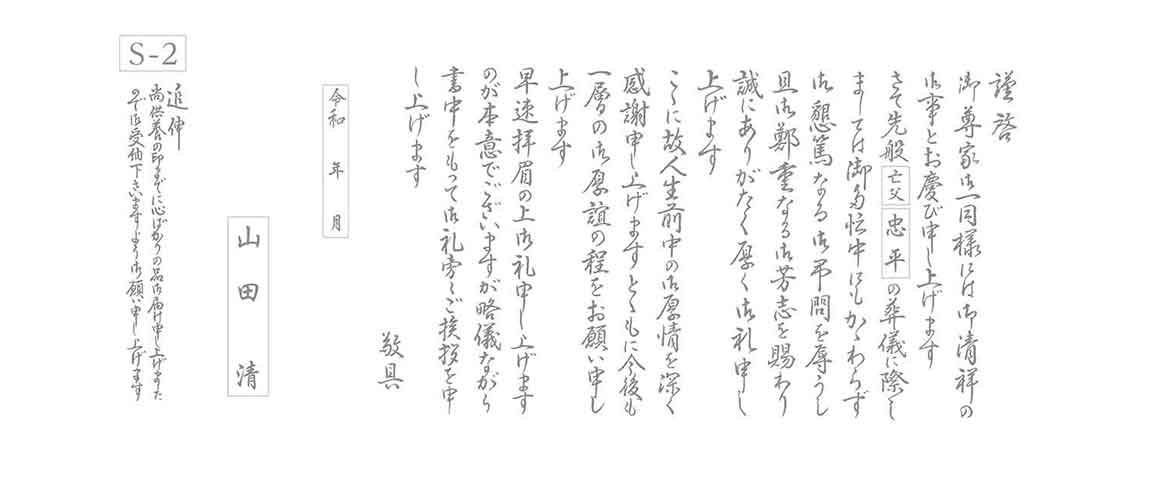 謹啓
御尊家御一同様には御清祥の
御事とお慶び申し上げます
さて先般 亡父 忠平 の葬儀に際し
ましては御多忙中にもかゝわらず
御懇篤なる御弔問を辱うし
且御鄭重なる御芳志を賜わり
誠にありがたく厚く御礼申し
上げます
こゝに故人生前中の御厚情を深く
感謝申し上げますとゝもに今後も
一層の御厚誼の程をお願い申し
上げます
早速拝眉の上御礼申し上げます
のが本意でございますが略儀ながら
書中をもって御礼旁々ご挨拶を申
し上げます
敬具
令和 年 月
山田 清
追伸
尚供養の印までに心ばかりの品御届け申し上げました
ので御受納下さいますよう御願い申し上げます
S-2